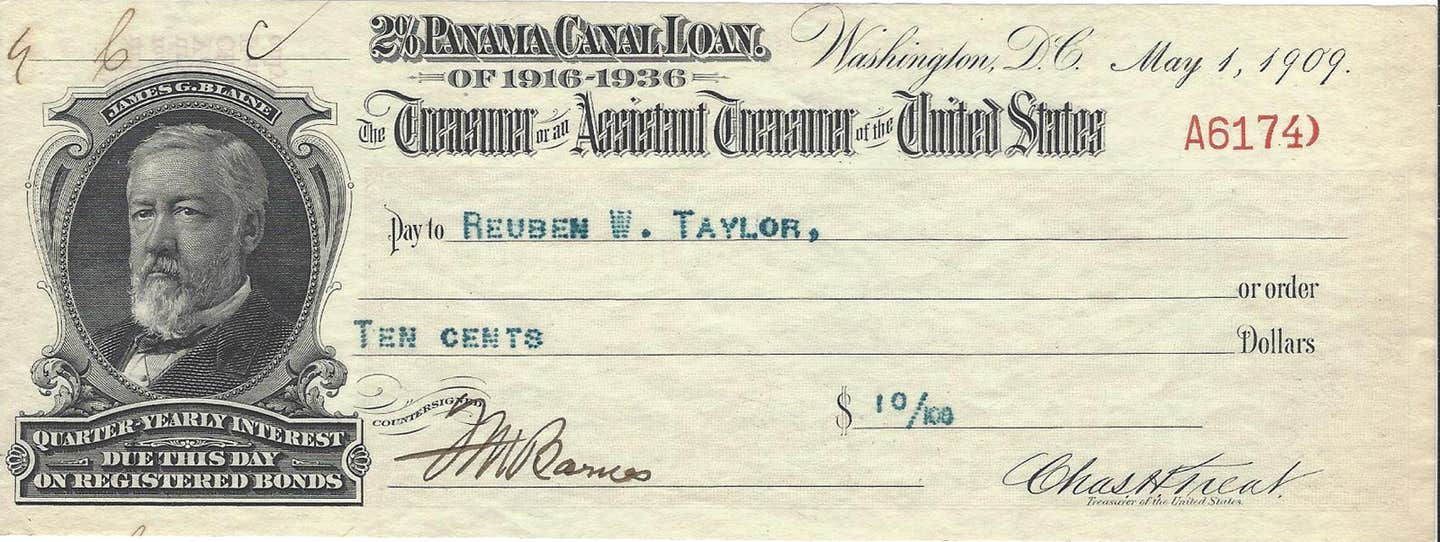 2% PANAMA CANAL LOAN.
OF 1916-1936
Washington, D.C. May 1, 1909.
JAMES G. BLAINE
The Treasurer or an Assistant Treasurer of the United States
A6174)
Pay to REUBEN W. TAYLOR,
or order
TEN CENTS Dollars
COUNTERSIGNED
$ 10/100
Barnes
QUARTER-YEARLY INTEREST
DUE THIS DAY
ON REGISTERED BONDS
Chas H Treat.
Treasurer of the United States.